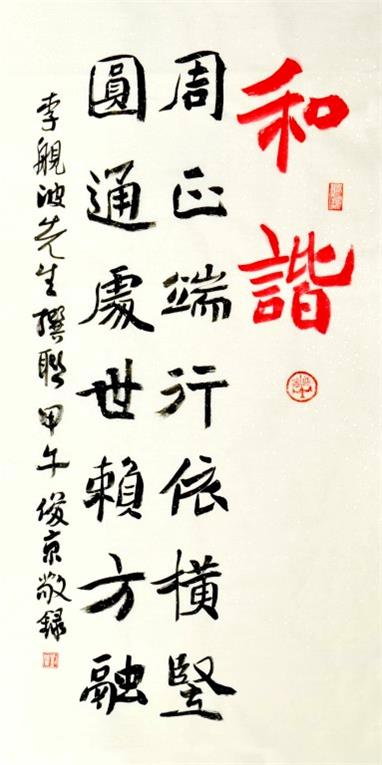 和諧
周正端行依横竖
圓通處世賴方融
李觀波先生撰聯甲午俊京敬録